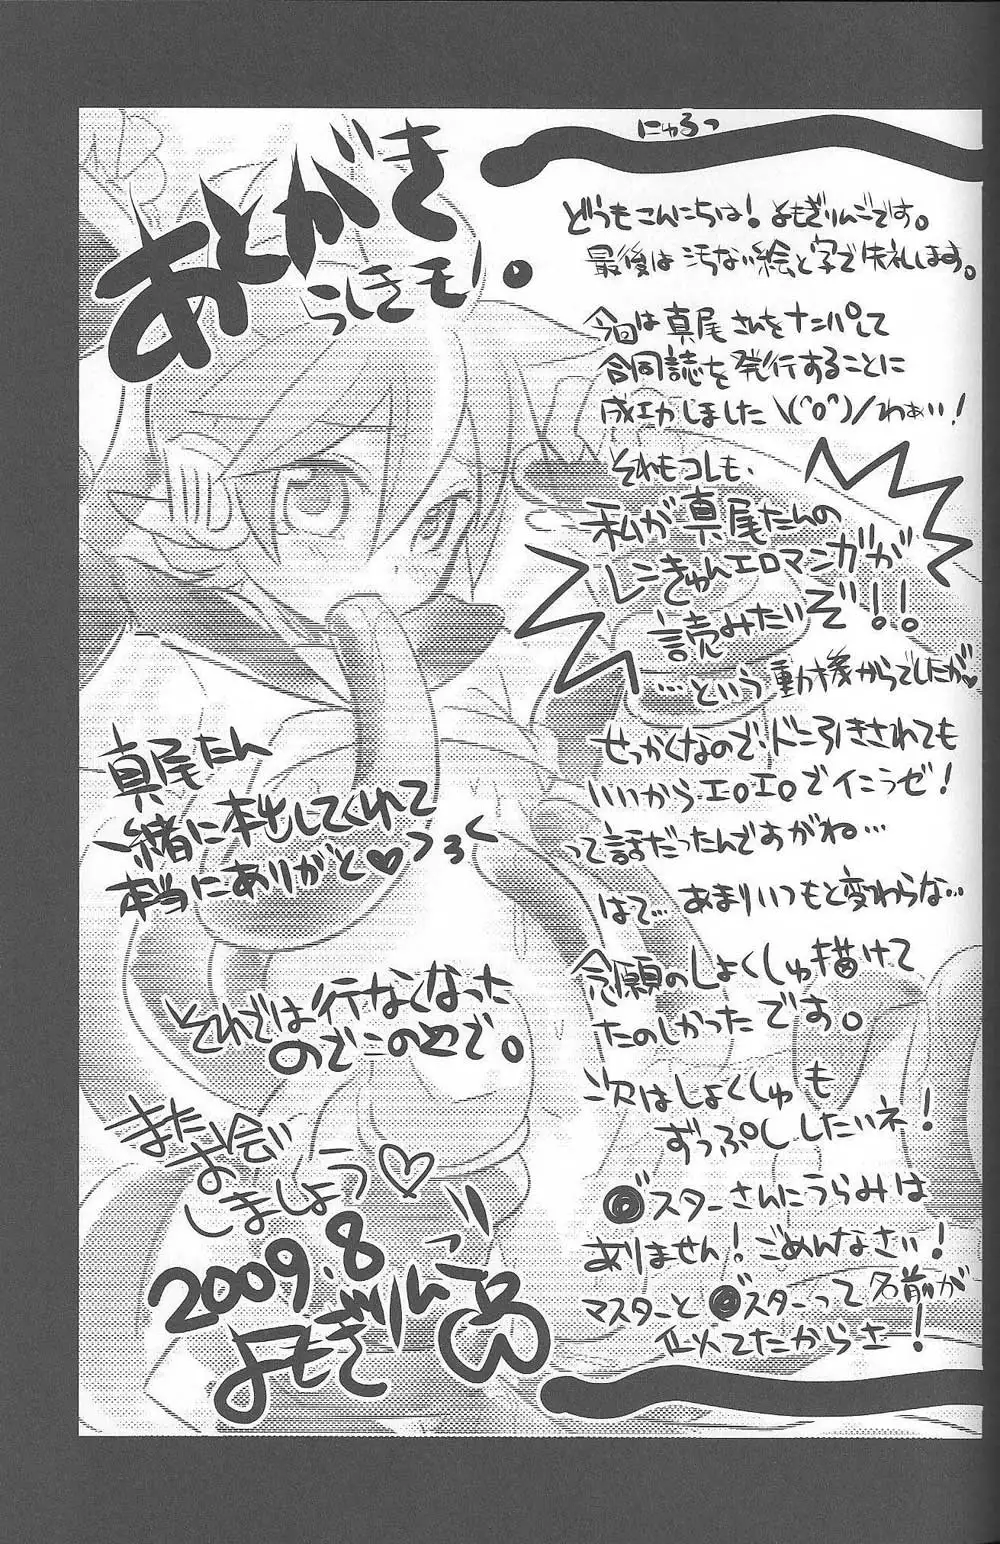 あとがき
らしきモノ。
にゅるっ
どうもこんにちは！よもぎりんごです。
最後は汚ない絵と字で失礼します。
今回は真尾さんをナンパして
合同誌を発行することに
成功しました\(^o^)/わぁい！
それもコレも、
私が真尾たんの
レンきゅんエロマンガが
読みたいぞ！！
…という動機からでしたが♥
せっかくなので、ドン引きされても
いいからエロエロでイこうゼ！
って話だったんですがね…
はて…あまりいつもと変わらな…
念願のしょくしゅ描けて
たのしかったです。
次はしょくしゅも
ずっぷししたいネ！
●スターさんにうらみは
ありません！ごめんなさい！
マスターと●スターって名前が
似てたからさ！
真尾たん
一緒に本出してくれて
本当にありがと♡
それでは行なくなった
のでこのへんで。
またお会い
しましょう♡
2009.8
よもぎりんご